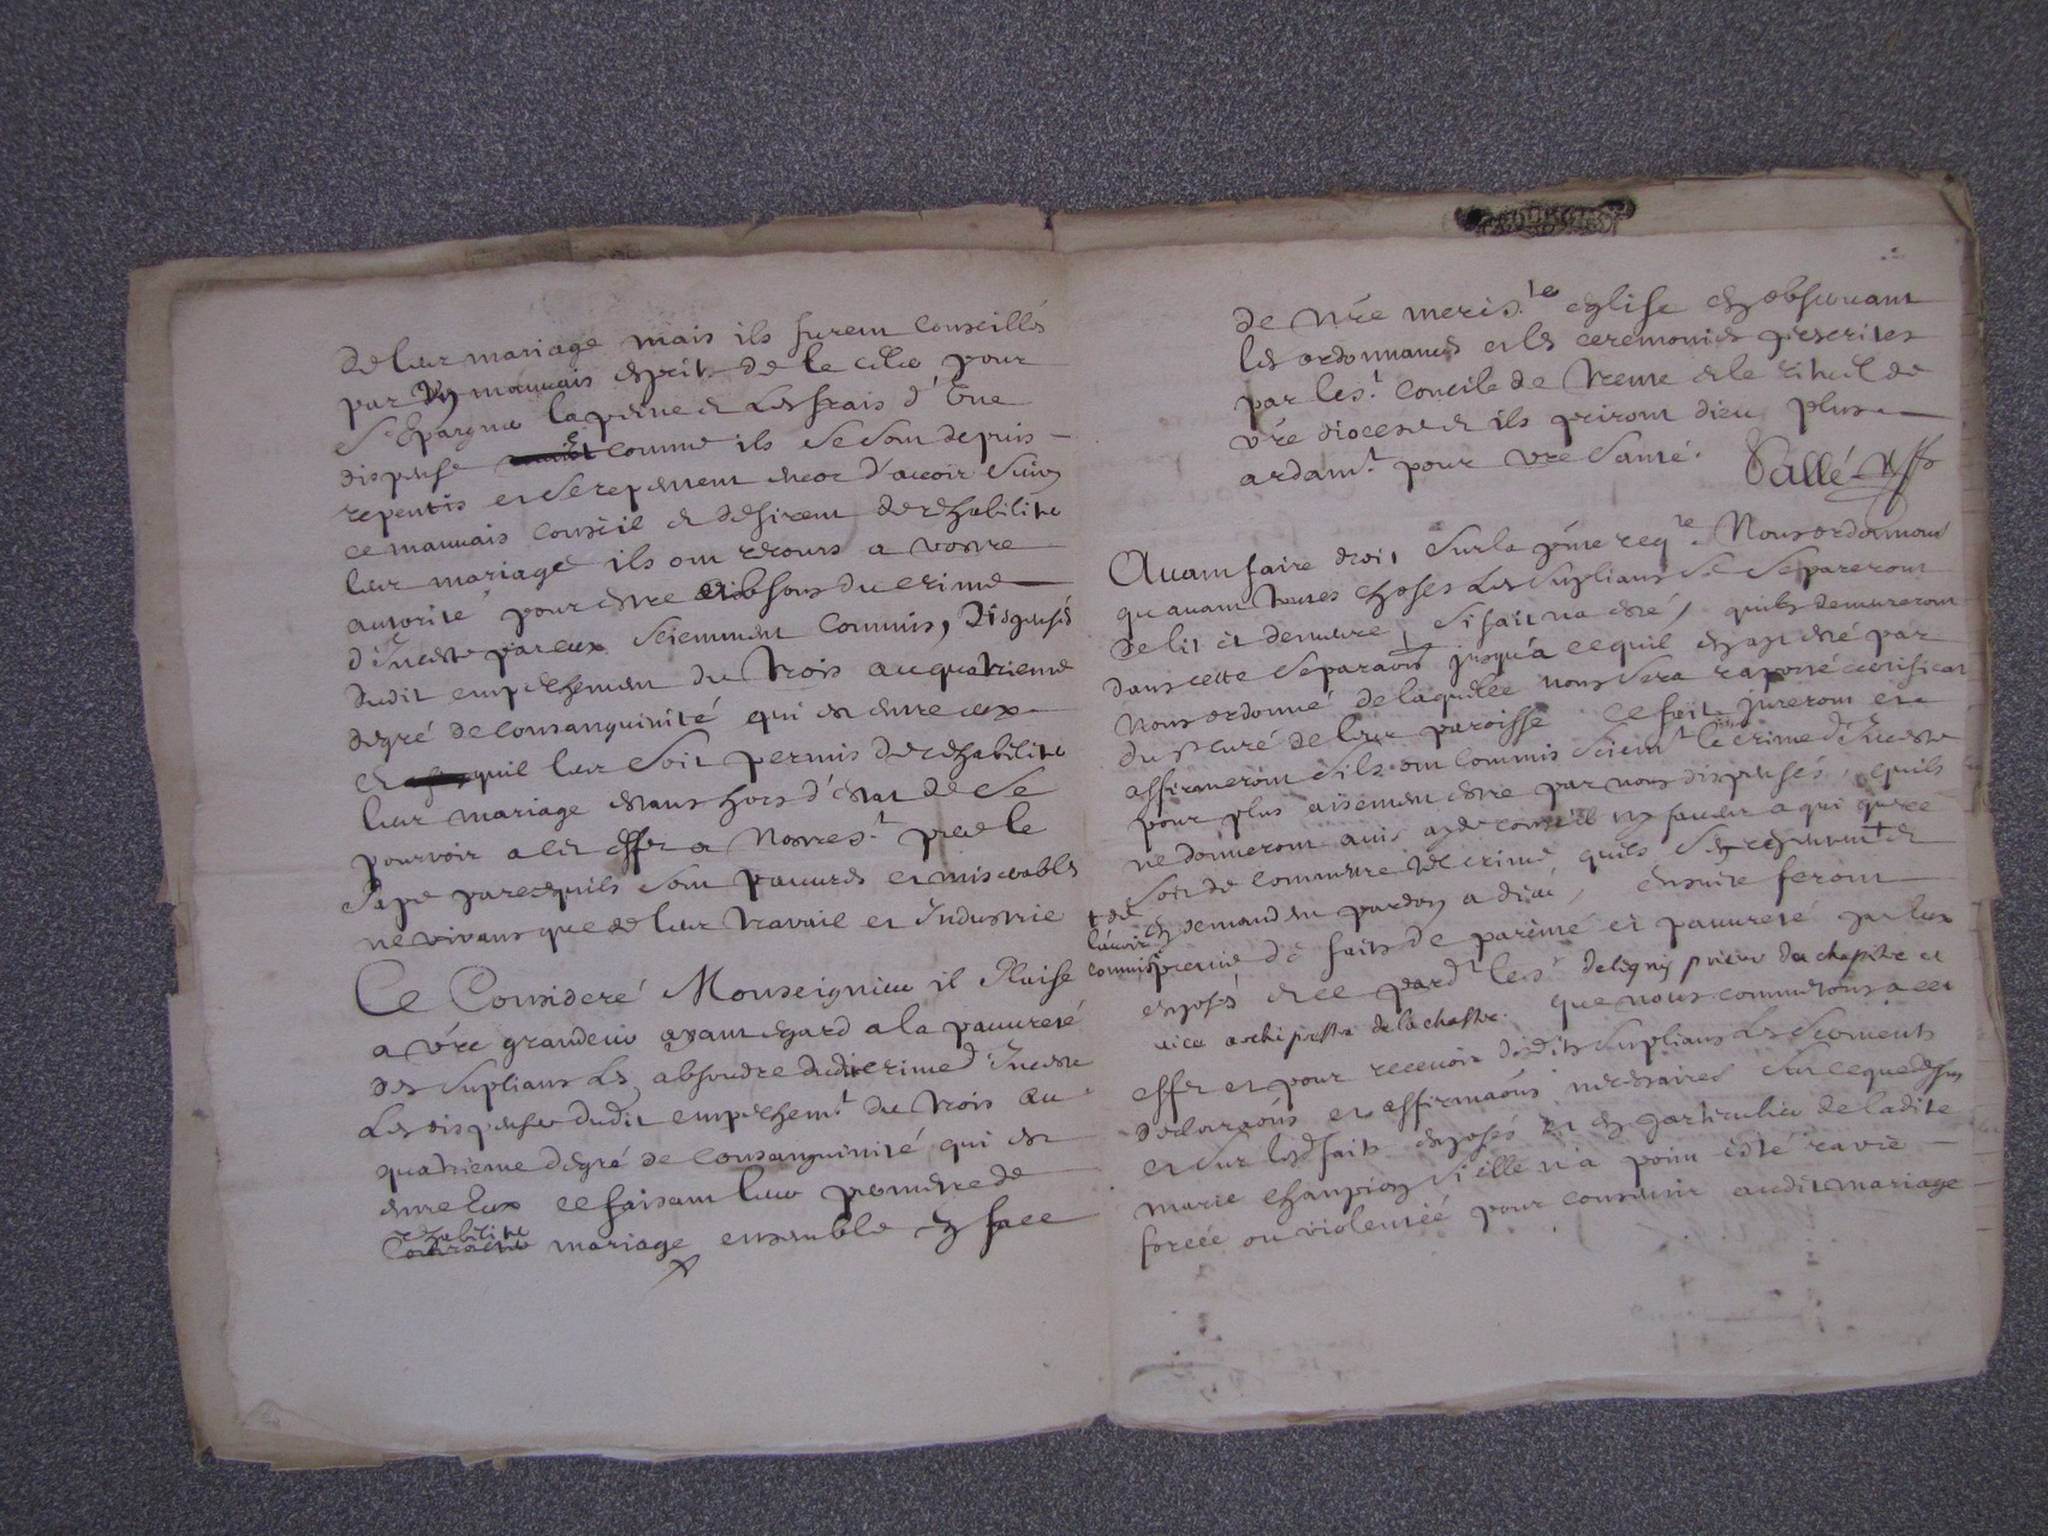 de leur mariage mais ils furent conseillés
par un mauvais esprit de le celer pour
s'Epargner la peine et les frais d'une
dispense et comme ils se sont depuis
repentis et se repentent encor d'avoir suivy
ce mauvais conseil et desirent de rehabiliter
leur mariage ils ont recours a vostre
autorité pour estre absous du crime
d'Inceste par eux sciemment commis, Dispensés
dudit empeschement du trois au quatrieme
degré de consanguinité qui est entre eux
et quil leur soit permis de rehabiliter
leur mariage estans hors d'estat de se
pourvoir a cet effet a Nostre s.t pere le
Pape parcequils sont pauvres et miserables
ne vivans que de leur travail et Industrie
Ce Consideré Monseigneur il Plaise
a vre grandeur ayant egard a la pauvreté
des suplians les absoudre dudit crime d'Inceste
les dispenser dudit empeschem.t du trois au
quatrieme degré de consanguinité qui est
entre eux ce faisant leur permettre de
rehabiliter
contracter mariage ensemble en face
de nre mere s.te eglise en observant
les ordonnances et les ceremonies prescrites
par le s.t concile de trente et le rituel de
vre diocese et ils priront dieu plus
ardam.t pour vre santé. Sallé
Avant faire droit sur la pnte req.te Nous ordonnons
qu avant toutes choses les suplians se separeront
de lit et demeure, si fait n'a esté, quils demeureront
dans cette separaon jusqu'a ce quil en ayt esté par
nous ordonné de laquelle nous sera raporté certificat
du s.r curé de leur paroisse ce fait jureront et
affirmeront sils ont commis sciem.t le crime d'Inceste
pour plus aisement estre par nous dispensés, quils
ne donneront avis ayde conseil ny faveur a qui que ce
soit de commettre tel crime quils se repentent + et
+ de
l'avoir
commis
en demandent pardon a dieu, ensuite feront
preuve des faits de parenté et pauvreté par eux
exposés et ce pard.t le s.r deligny prieur du chapitre et
vice archiprestre de la chastre que nous commettons a cet
effet et pour recevoir desdits suplians les serments
declaraons et affirmaons necessaires sur ce que dessus
et sur lesd faits exposés et en particulier de ladite
marie champion si elle n'a point esté ravie
forcée ou violentée pour consentir audit mariage